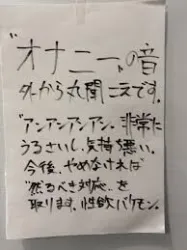 "オナニー"の音
外から丸聞こえです。
"アンアンアンアン。非常に
うるさいし、気持ち悪い。
今後、やめなければ
"然るべき対応"を
取ります。性欲バケモン。